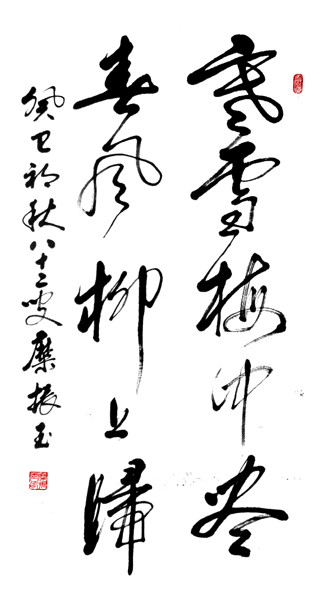 寒雪梅中尽
春风柳上歸
癸巳初秋八十二叟糜振玉